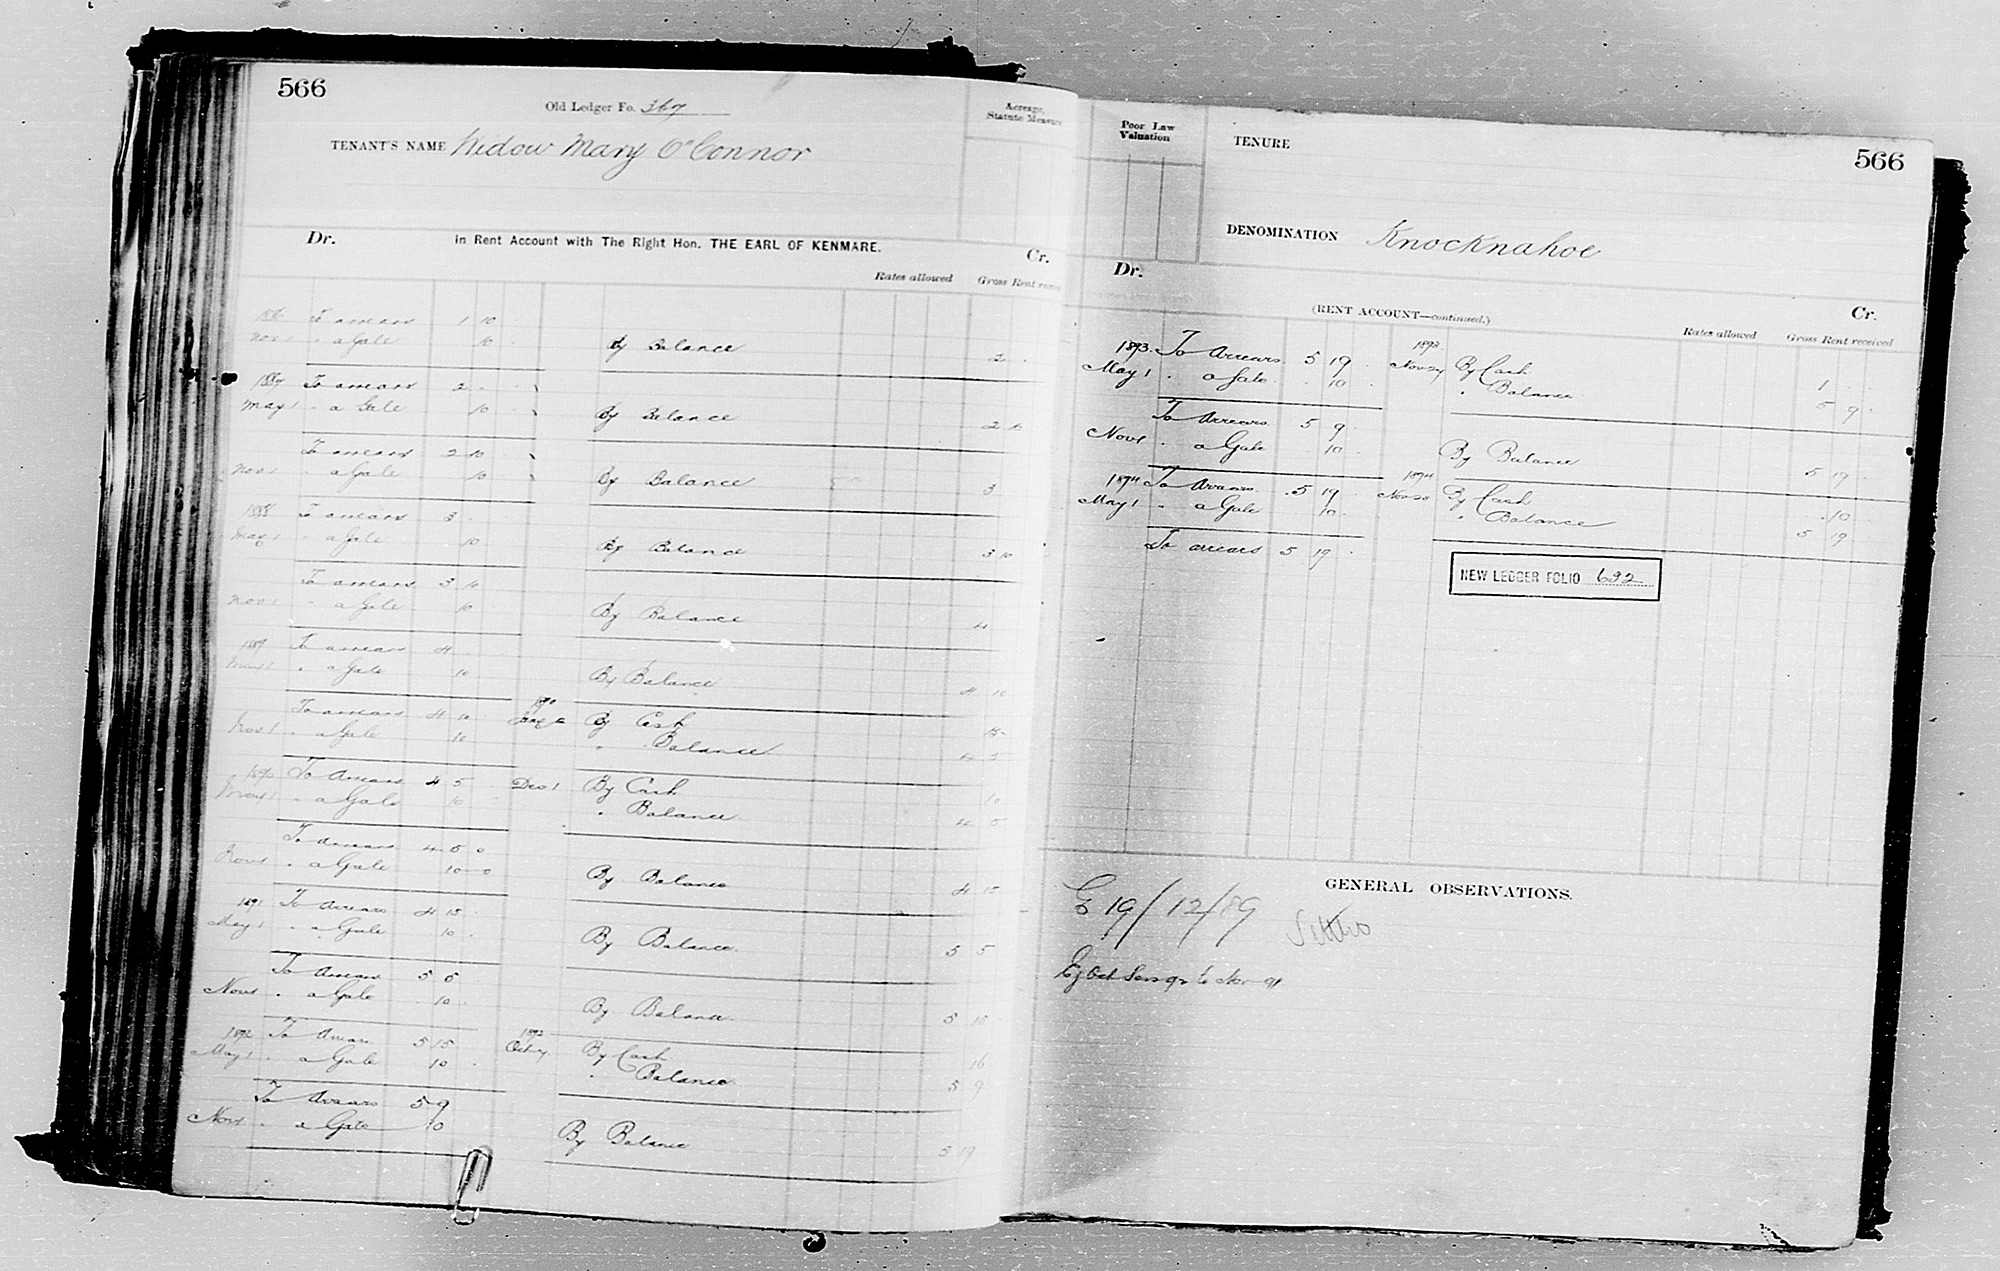 566
Old Ledger Fo. 367
Acreage, Statute Measure
TENANT'S NAME Widow Mary O'Connor
Dr. in Rent Account with The Right Hon. THE EARL OF KENMARE. Cr.
Rates allowed Gross Rent received
1886 To arrears 1 10
Nov 1 " a Gale 10 By Balance 2
1887 To arrears 2
May 1 " a Gale 10 By Balance 2 10
To arrears 2 10
Nov 1 " a Gale 10 By Balance 3
1888 To arrears 3
May 1 " a Gale 10 By Balance 3 10
To arrears 3 10
Nov 1 " a Gale 10 By Balance 4
1889 To arrears 4
May 1 " a Gale 10 By Balance 4 10
To arrears 4 10 1890 By Cash 15
Nov 1 " a Gale 10 " Balance 4 5
1890 To Arrears 4 5 Dec 1 By Cash 10
May 1 " a Gale 10 " Balance 4 5
To Arrears 4 5 0
Nov 1 " a Gale 10 0 By Balance 4 15
1891 To Arrears 4 15
May 1 " a Gale 10 By Balance 5 5
To Arrears 5 5
Nov 1 " a Gale 10 By Balance 5 15
1892 To Arrears 5 15 1892 Oct By Cash 16
May 1 " a Gale 10 " Balance 5 9
To Arrears 5 9
Nov 1 " a Gale 10 By Balance 5 19
Poor Law Valuation
TENURE
566
DENOMINATION Knocknahoe
Dr. (RENT ACCOUNT—continued.) Cr.
Rates allowed Gross Rent received
1893 To Arrears 5 19 1893 Nov By Cash 1
May 1 " a Gale 10 " Balance 5 9
To Arrears 5 9
Nov 1 " a Gale 10 By Balance 5 19
1894 To Arrears 5 19 1894 Nov By Cash 10
May 1 " a Gale 10 " Balance 5 19
To arrears 5 19
NEW LEDGER FOLIO 632
GENERAL OBSERVATIONS.
E 19/12/89